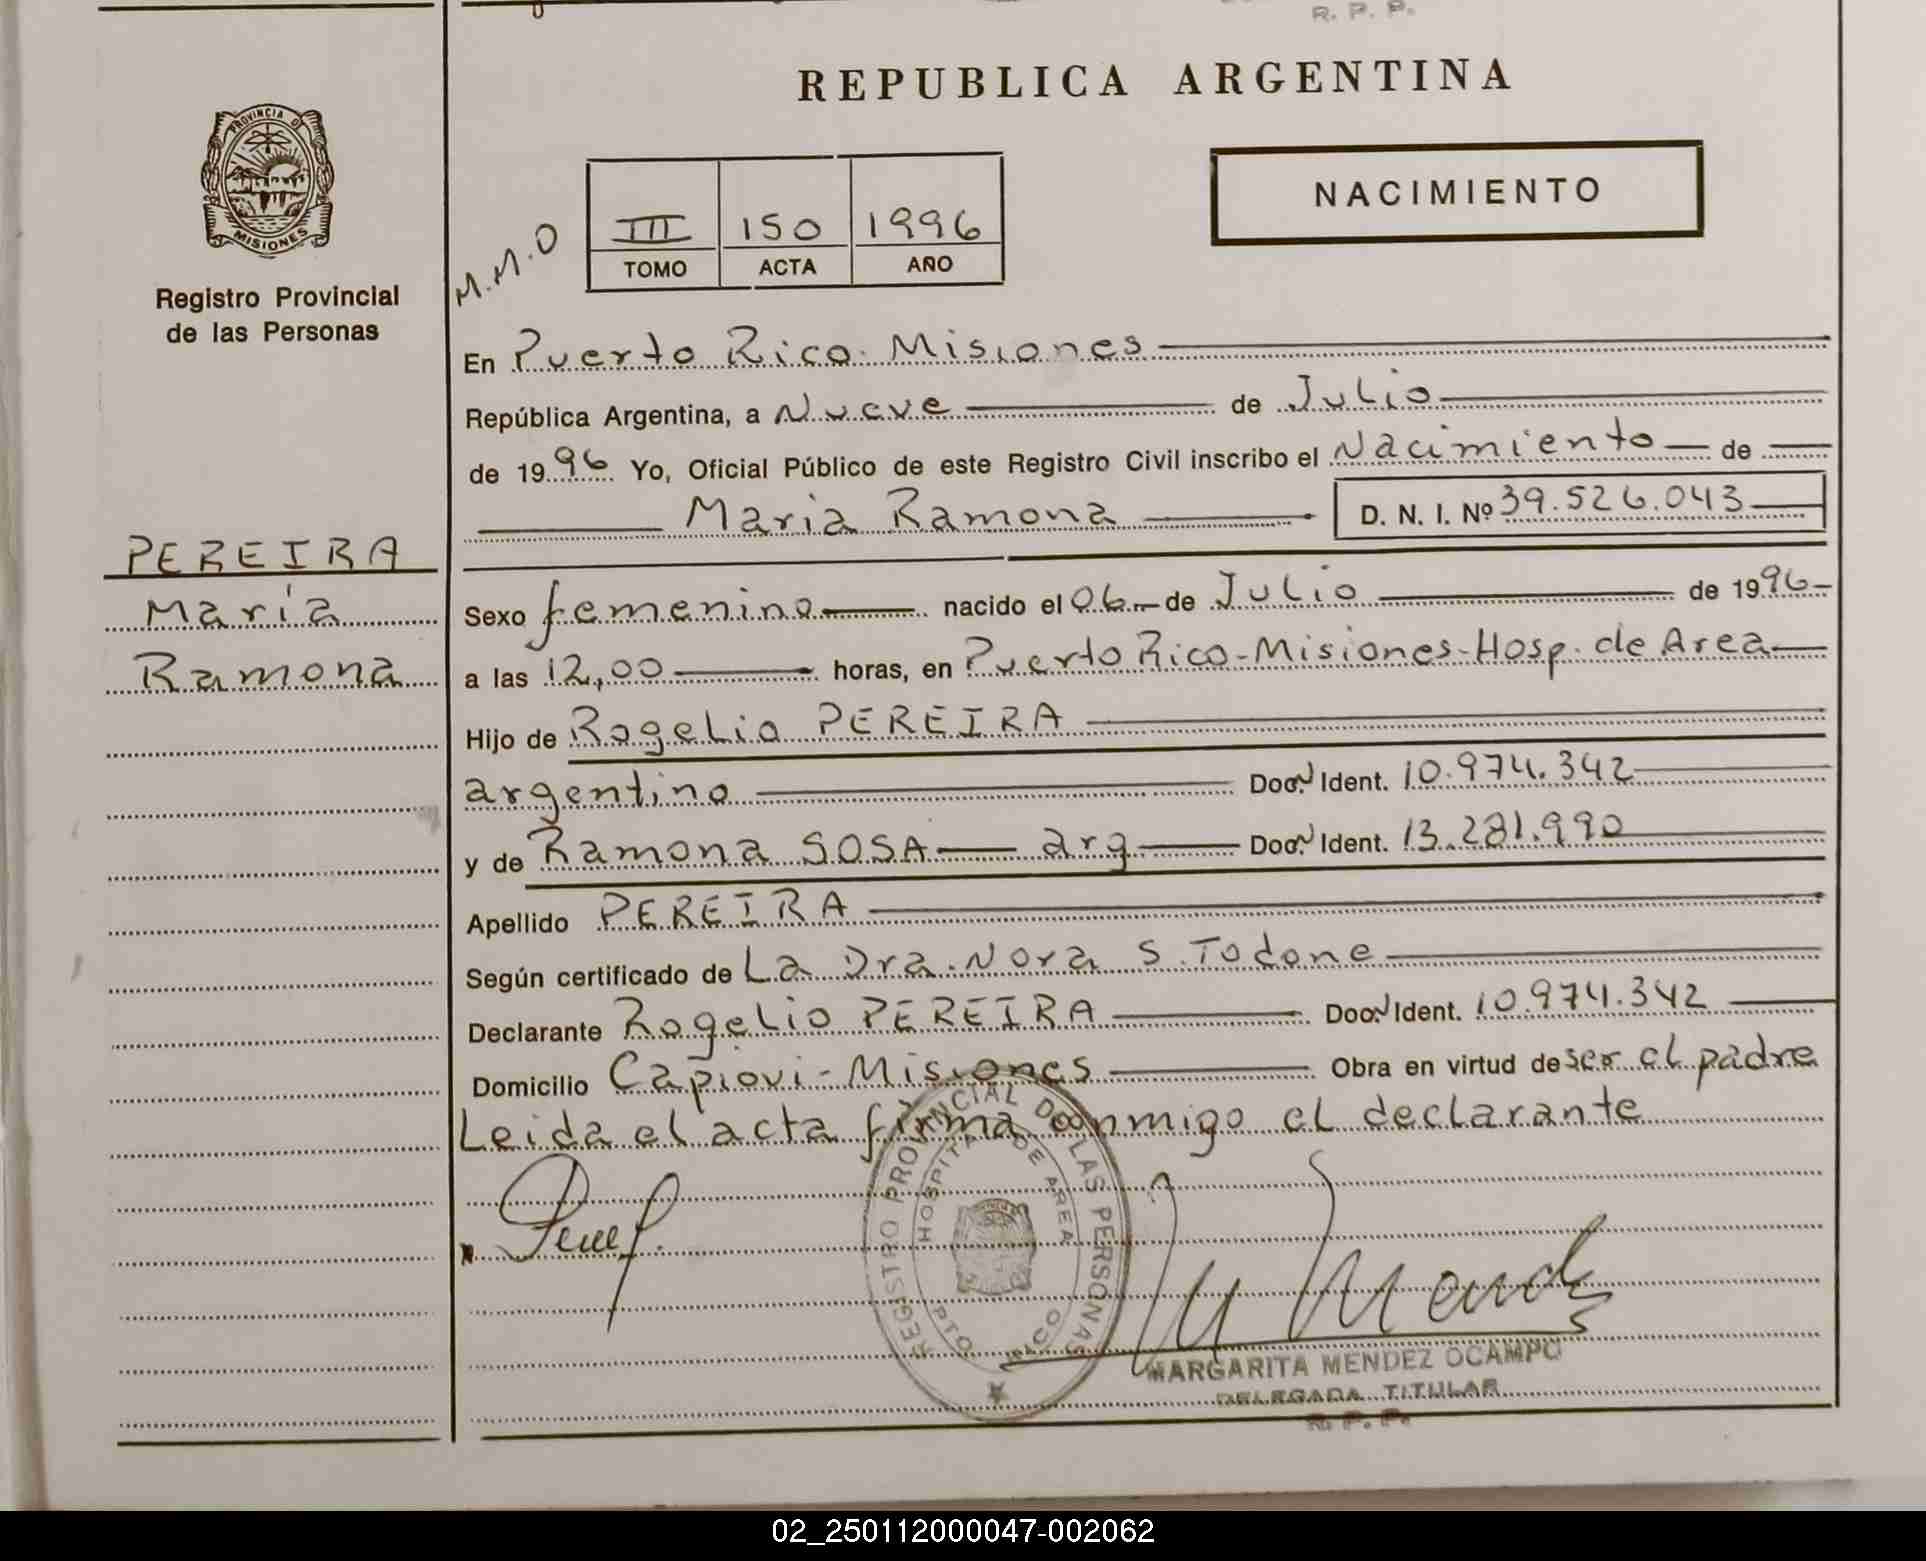 R. P. P.
REPUBLICA ARGENTINA
PROVINCIA D
MISIONES
Registro Provincial
de las Personas
M.M.O
III 150 1996
TOMO ACTA AÑO
NACIMIENTO
En Puerto Rico. Misiones
República Argentina, a Nueve de Julio
de 1996 Yo, Oficial Público de este Registro Civil inscribo el Nacimiento de
Maria Ramona D. N. I. Nº 39.526.043
PEREIRA
María
Ramona
Sexo femenino nacido el 06 de Julio de 1996
a las 12,00 horas, en Puerto Rico-Misiones-Hosp. de Area
Hijo de Rogelio PEREIRA
argentino Doc. Ident. 10.974.342
y de Ramona SOSA arg Doc. Ident. 13.281.990
Apellido PEREIRA
Según certificado de La Dra. Nora S. Todone
Declarante Rogelio PEREIRA Doc. Ident. 10.974.342
Domicilio Capiovi-Misiones Obra en virtud de ser el padre
Leida el acta firma conmigo el declarante
REGISTRO PROVINCIAL DE LAS PERSONAS
HOSPITAL DE AREA
PTO RICO
MARGARITA MENDEZ OCAMPO
DELEGADA TITULAR
R. P. P.
02_250112000047-002062